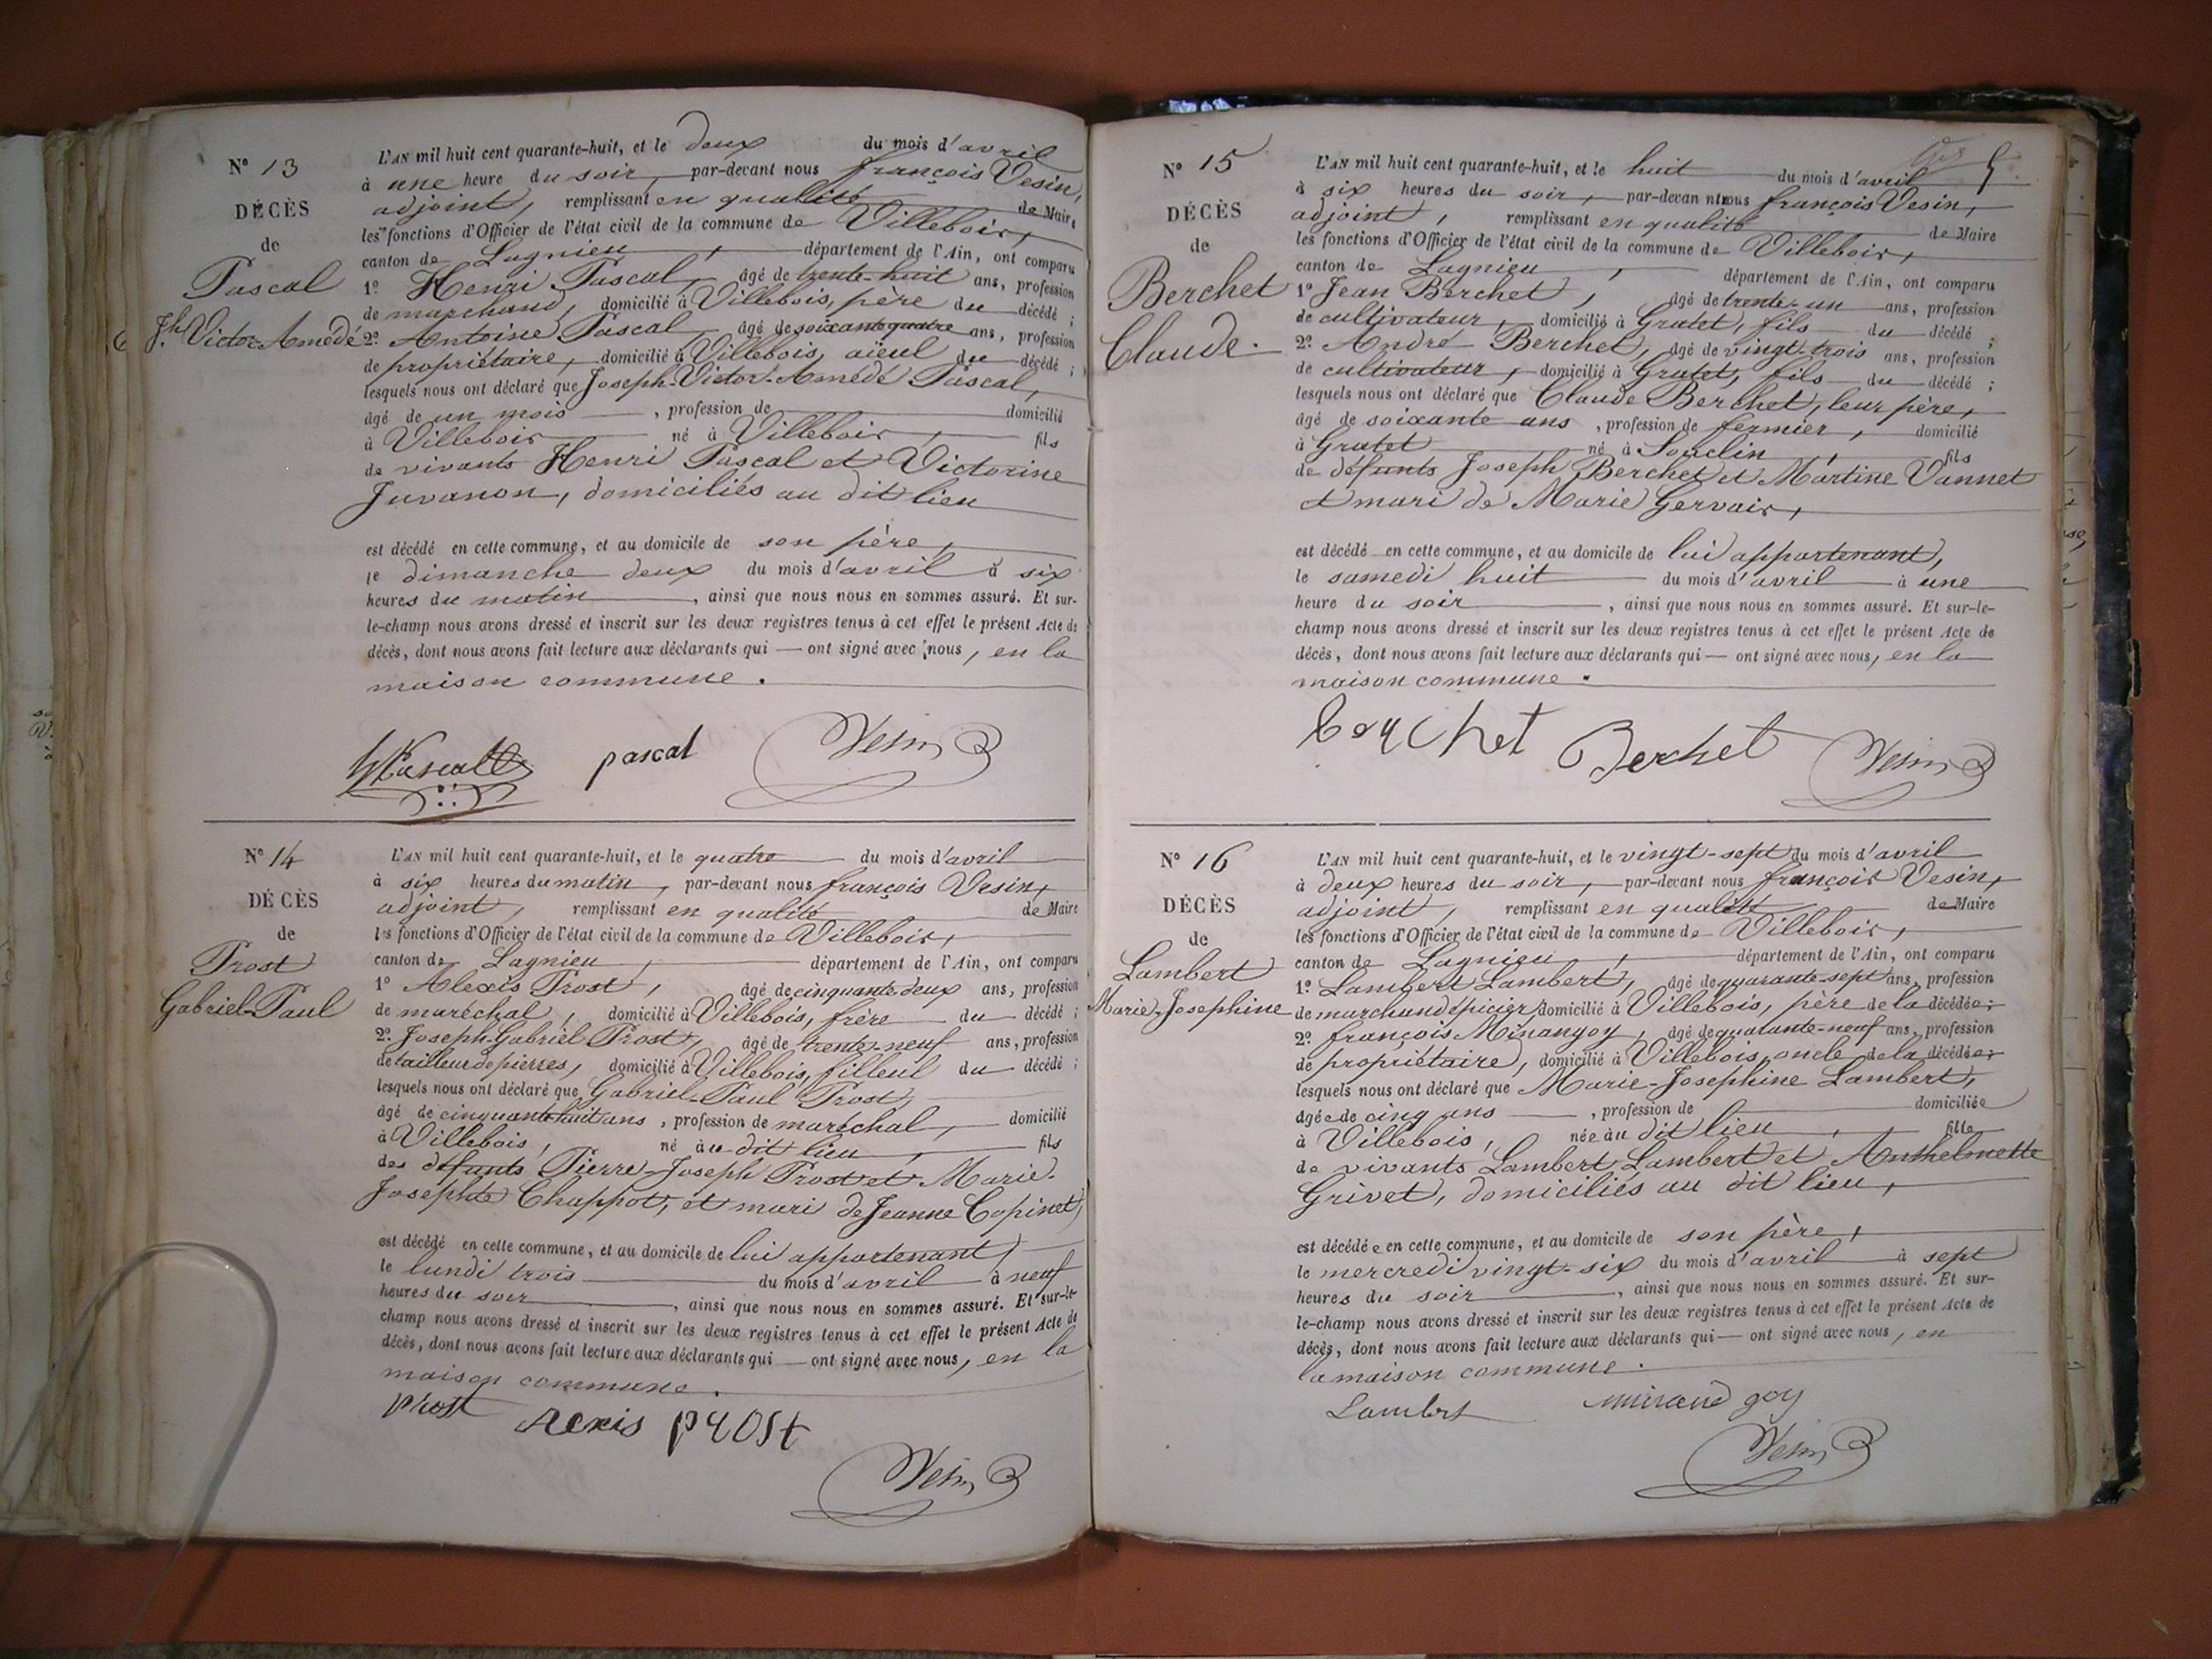 N° 13
DÉCÈS
de
Pascal
Jh. Victor-Amédé
L'AN mil huit cent quarante-huit, et le deux du mois d'avril
à une heure du soir, par-devant nous françois Vesin,
adjoint, remplissant en qualité de Maire
les fonctions d'Officier de l'état civil de la commune de Villebois,
canton de Lagnieu, département de l'Ain, ont comparu
1° Henri Pascal, âgé de trente-huit ans, profession
de marchand, domicilié à Villebois, père du décédé ;
2° Antoine Pascal, âgé de soixante quatre ans, profession
de propriétaire, domicilié à Villebois, aïeul du décédé ;
lesquels nous ont déclaré que Joseph-Victor-Amédé Pascal,
âgé de un mois, profession de domicilié
à Villebois né à Villebois, fils
de vivants Henri Pascal et Victorine
Juvanon, domiciliés au dit lieu
est décédé en cette commune, et au domicile de son père,
le dimanche deux du mois d'avril à six
heures du matin, ainsi que nous nous en sommes assuré. Et sur-
le-champ nous avons dressé et inscrit sur les deux registres tenus à cet effet le présent Acte de
décès, dont nous avons fait lecture aux déclarants qui — ont signé avec nous, en la
maison commune.
pascal Vesin
N° 14
DÉCÈS
de
Prost
Gabriel-Paul
L'AN mil huit cent quarante-huit, et le quatre du mois d'avril
à six heures du matin, par-devant nous françois Vesin,
adjoint, remplissant en qualité de Maire
les fonctions d'Officier de l'état civil de la commune de Villebois,
canton de Lagnieu, département de l'Ain, ont comparu
1° Alexis Prost, âgé de cinquante deux ans, profession
de maréchal, domicilié à Villebois, frère du décédé ;
2° Joseph-Gabriel Prost, âgé de trente-neuf ans, profession
de tailleur de pierres, domicilié à Villebois, filleul du décédé ;
lesquels nous ont déclaré que Gabriel-Paul Prost,
âgé de cinquante huit ans, profession de maréchal, domicilié
à Villebois, né au dit lieu, fils
des défunts Pierre-Joseph Prost et Marie-
Josephte Chappot, et mari de Jeanne Copinet,
est décédé en cette commune, et au domicile de lui appartenant,
le lundi trois du mois d'avril à neuf
heures du soir, ainsi que nous nous en sommes assuré. Et sur-le-
champ nous avons dressé et inscrit sur les deux registres tenus à cet effet le présent Acte de
décès, dont nous avons fait lecture aux déclarants qui — ont signé avec nous, en la
maison commune.
prost Alexis prost
Vesin
N° 15
DÉCÈS
de
Berchet
Claude.
L'AN mil huit cent quarante-huit, et le huit du mois d'avril
à six heures du soir, par-devan ntnous françois Vesin,
adjoint, remplissant en qualité de Maire
les fonctions d'Officier de l'état civil de la commune de Villebois,
canton de Lagnieu, département de l'Ain, ont comparu
1° Jean Berchet, âgé de trente-un ans, profession
de cultivateur, domicilié à Gratet, fils du décédé ;
2° André Berchet, âgé de vingt-trois ans, profession
de cultivateur, domicilié à Gratet, fils du décédé ;
lesquels nous ont déclaré que Claude Berchet, leur père,
âgé de soixante ans, profession de fermier, domicilié
à Gratet né à Souclin, fils
de défunts Joseph Berchet et Martine Vannet
et mari de Marie Gervais,
est décédé en cette commune, et au domicile de lui appartenant,
le samedi huit du mois d'avril à une
heure du soir, ainsi que nous nous en sommes assuré. Et sur-le-
champ nous avons dressé et inscrit sur les deux registres tenus à cet effet le présent Acte de
décès, dont nous avons fait lecture aux déclarants qui — ont signé avec nous, en la
maison commune.
berchet Berchet Vesin
N° 16
DÉCÈS
de
Lambert
Marie-Josephine
L'AN mil huit cent quarante-huit, et le vingt-sept du mois d'avril
à deux heures du soir, par-devant nous françois Vesin,
adjoint, remplissant en qualité de Maire
les fonctions d'Officier de l'état civil de la commune de Villebois,
canton de Lagnieu, département de l'Ain, ont comparu
1° Lambert Lambert, âgé de quarante-sept ans, profession
de marchand épicier, domicilié à Villebois, père de la décédée ;
2° françois Minangoy, âgé de quarante-neuf ans, profession
de propriétaire, domicilié à Villebois, oncle de la décédée ;
lesquels nous ont déclaré que Marie-Josephine Lambert,
âgée de cinq ans, profession de domiciliée
à Villebois, née au dit lieu, fille
de vivants Lambert Lambert et Anthelmette
Grivet, domiciliés au dit lieu,
est décédée en cette commune, et au domicile de son père,
le mercredi vingt-six du mois d'avril à sept
heures du soir, ainsi que nous nous en sommes assuré. Et sur-
le-champ nous avons dressé et inscrit sur les deux registres tenus à cet effet le présent Acte de
décès, dont nous avons fait lecture aux déclarants qui — ont signé avec nous, en
la maison commune.
Lambert
Vesin